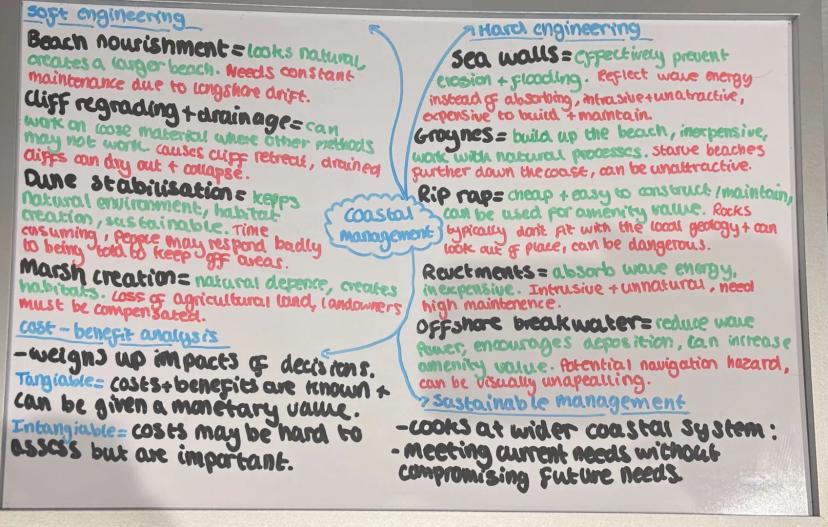 Soft engineering
Beach nourishment = looks natural,
creates a larger beach. Needs constant
maintenance due to longshore drift.
Cliff regrading + drainage = can
work on loose material where other methods
may not work. causes cliff retreat, drained
cliffs can dry out + collapse.
Dune stabilisation = kepps
natural environment, habitat
creation, sustainable. Time
consuming, people may respond badly
to being told to keep off areas.
Marsh creation = natural defence, creates
habitats. Loss of agricultural land, landowners
must be compensated.
Cost-benefit analysis
-weighs up impacts of decisions.
Tangiable = costs + benefits are known +
can be given a monetary value.
Intangiable = costs may be hard to
assess but are important.
Coastal
management
Hard engineering
Sea walls = effectively prevent
erosion + flooding. Reflect wave energy
instead of absorbing, intrusive + unatractive,
expensive to build + maintain.
Groynes = build up the beach, inexpensive,
work with natural processes. Starve beaches
further down the coast, can be unattractive.
Rip rap = cheap + easy to construct/maintain,
can be used for amenity value. Rocks
typically don't fit with the local geology + can
look out of place, can be dangerous.
Revetments = absorb wave energy,
inexpensive. Intrusive + unnatural, need
high maintenence.
Offshore breakwater = reduce wave
power, encourages deposition, can increase
amenity value. Potential navigation hazard,
can be visually unapealling.
Sustainable management
-Looks at wider coastal system:
-Meeting current needs without
compromising future needs.